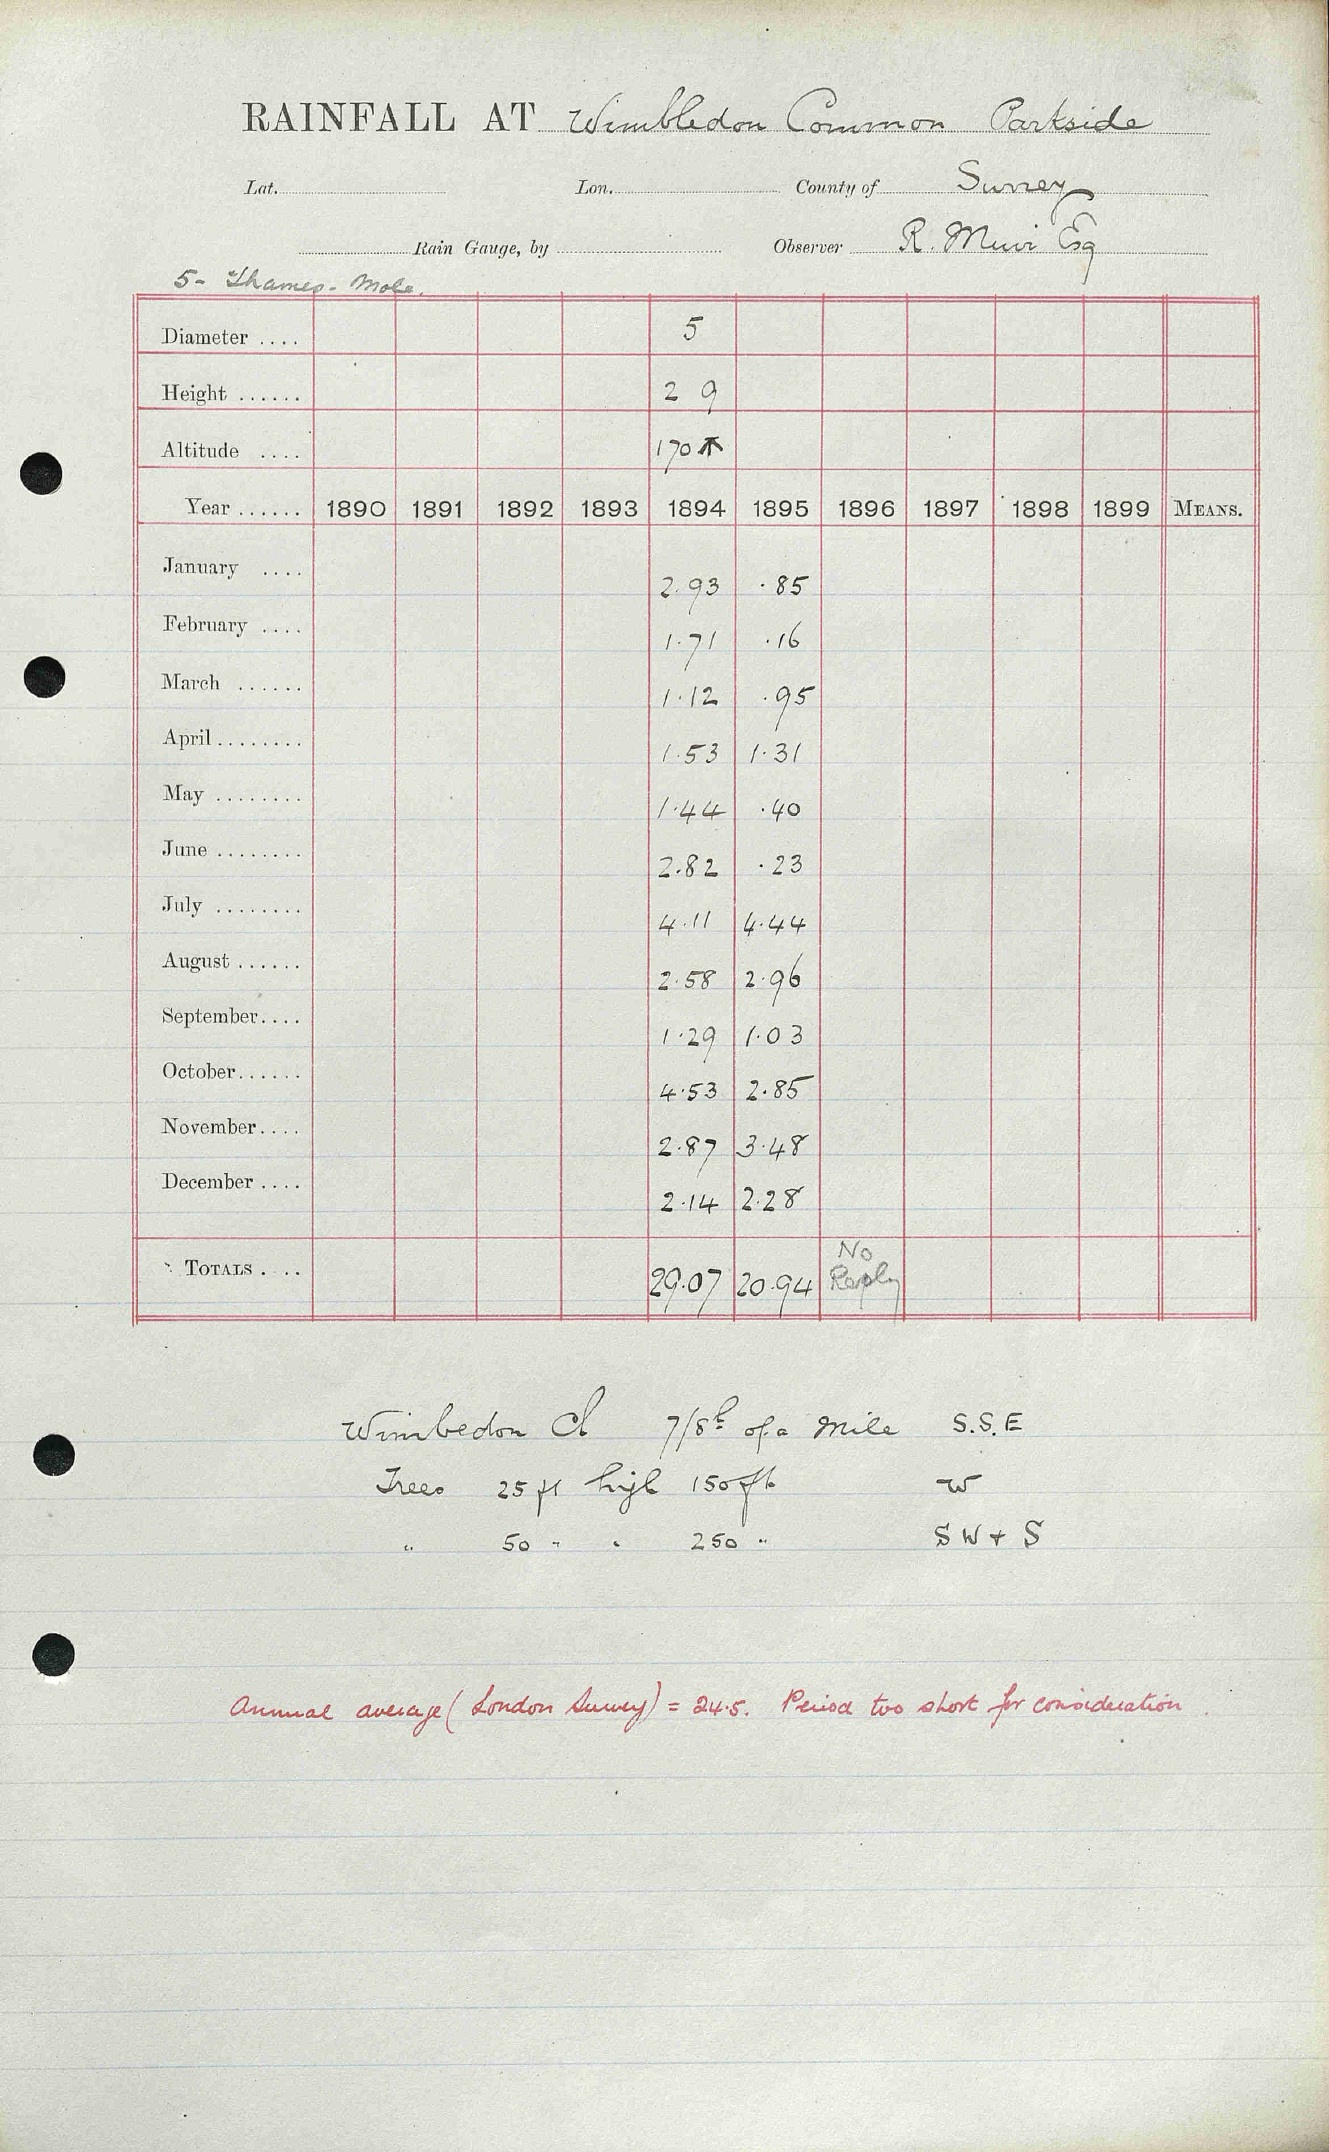 RAINFALL AT Wimbledon Common Parkside
Lat. Lon. County of Surrey
Rain Gauge, by Observer R. Muir Esq
5 - Thames - Mole.
Diameter .... 5
Height ...... 2 9
Altitude .... 170 ↑
Year ...... 1890 1891 1892 1893 1894 1895 1896 1897 1898 1899 MEANS.
January .... 2.93 .85
February .... 1.71 .16
March ...... 1.12 .95
April ........ 1.53 1.31
May ........ 1.44 .40
June ........ 2.82 .23
July ........ 4.11 4.44
August ...... 2.58 2.96
September.... 1.29 1.03
October...... 4.53 2.85
November.... 2.87 3.48
December .... 2.14 2.28
TOTALS .... 29.07 20.94 No Reply
Wimbedon Ch 7/8th of a Mile S.S.E
Trees 25 ft high 150 ft W
" 50 " " 250 " SW + S
Annual average (London Survey) = 24.5. Period too short for consideration.